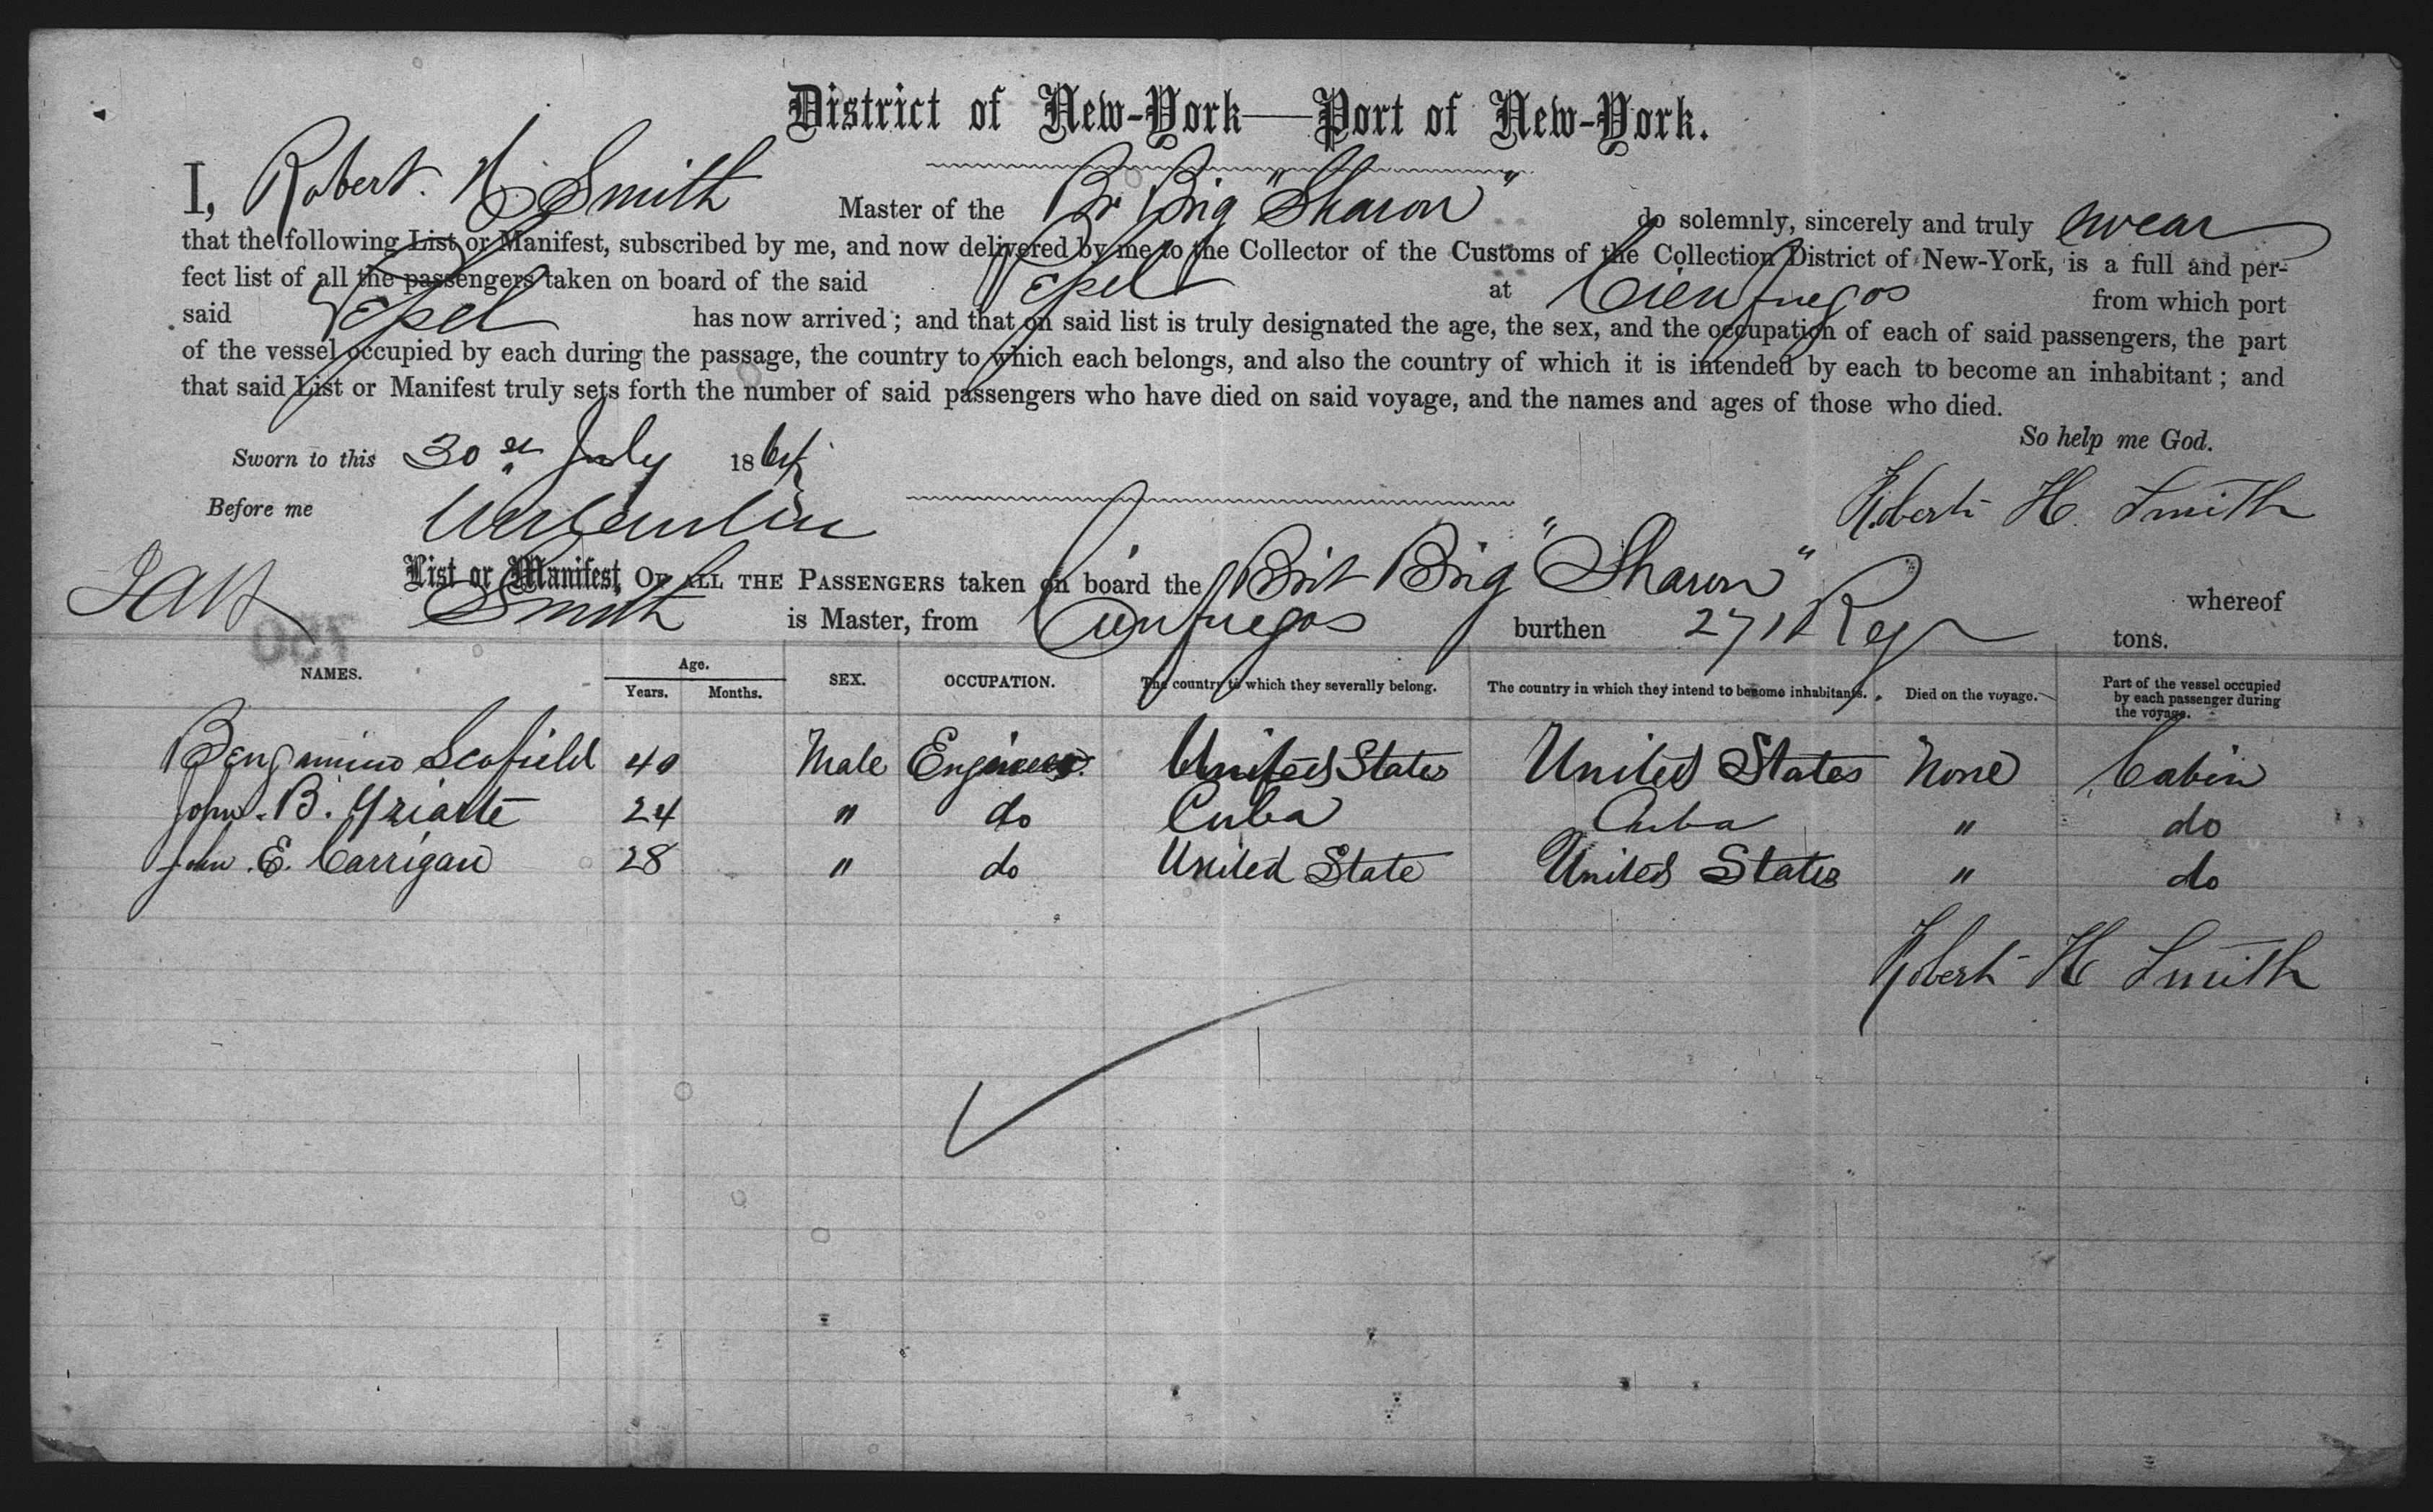 District of New-York—Port of New-York.
I, Robert H Smith Master of the Br Brig "Sharon" do solemnly, sincerely and truly swear
that the following List or Manifest, subscribed by me, and now delivered by me to the Collector of the Customs of the Collection District of New-York, is a full and per-
fect list of all the passengers taken on board of the said at Cienfuegos from which port
said has now arrived; and that on said list is truly designated the age, the sex, and the occupation of each of said passengers, the part
of the vessel occupied by each during the passage, the country to which each belongs, and also the country of which it is intended by each to become an inhabitant; and
that said List or Manifest truly sets forth the number of said passengers who have died on said voyage, and the names and ages of those who died.
So help me God.
Sworn to this 30 July 1864
Robert H. Smith
Before me
List or Manifest, OF ALL THE PASSENGERS taken on board the Brit Brig "Sharon" whereof
Smith is Master, from Cienfuegos burthen 271 Reg tons.
NAMES. Age. Years. Months. SEX. OCCUPATION. The country to which they severally belong. The country in which they intend to become inhabitants. Died on the voyage. Part of the vessel occupied by each passenger during the voyage.
Bengamino Scofield 40 Male Engineer United States United States None Cabin
John. B. Yziarte 24 " do Cuba Cuba " do
John. E. Carrigan 28 " do United State United States " do
Robert H Smith